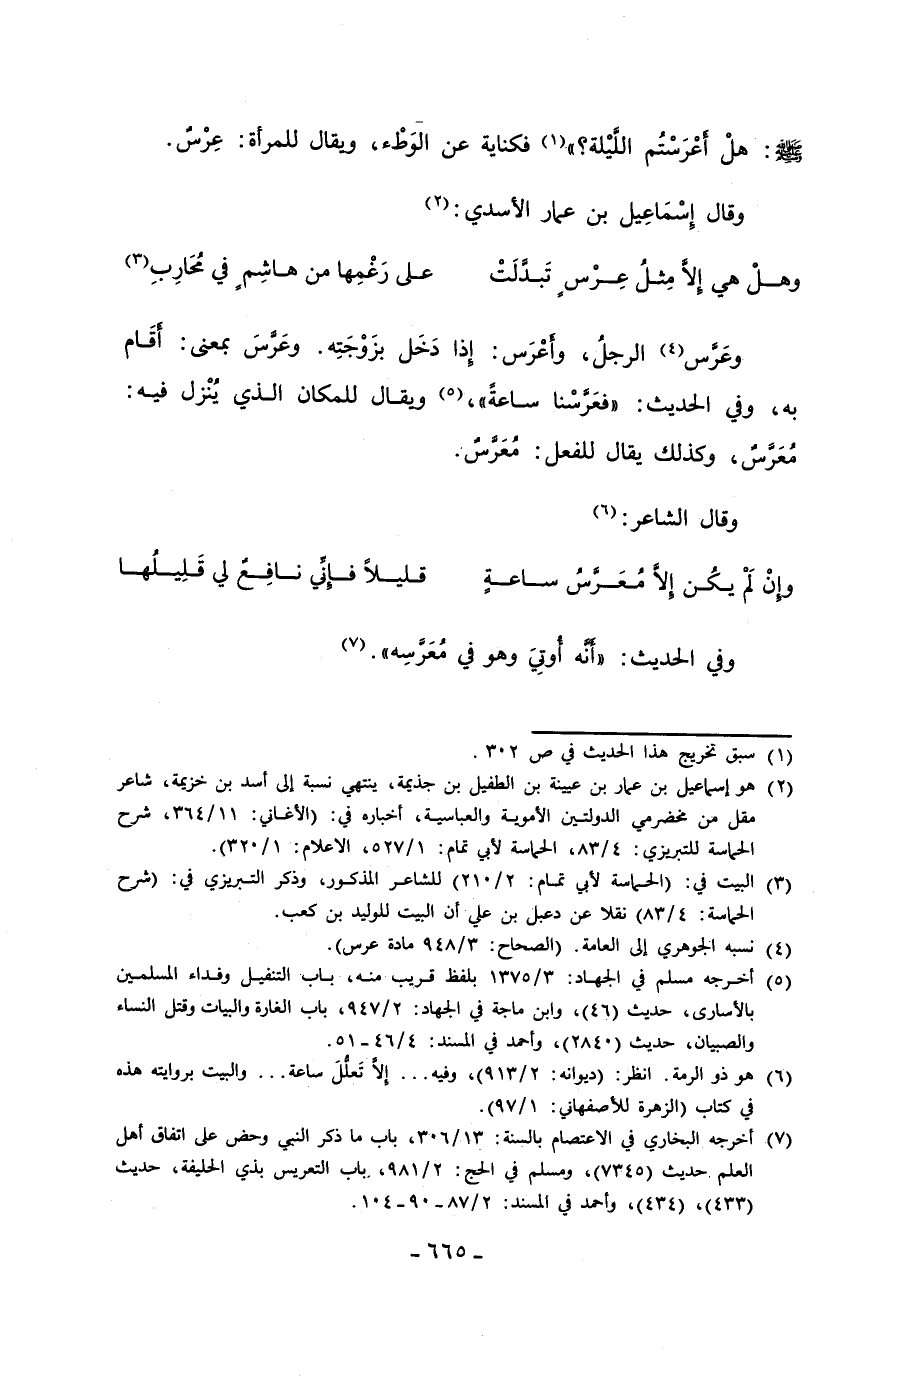 ﷺ: هلْ أَعْرَسْتُم اللَّيْلة؟»(١) فكناية عن الوَطْء، ويقال للمرأة: عِرْسٌ.
وقال إِسْمَاعِيل بن عمار الأسدي:(٢)
وهـلْ هي إِلاَّ مِثلُ عِـرْسٍ تَبـدَّلَتْ على رَغْمِها من هـاشِمٍ في مُحَارِبِ(٣)
وعَرَّس(٤) الرجلُ، وأَعْرَس: إِذا دَخَل بزَوْجَتِه. وعَرَّسَ بمعنى: أَقَام
به، وفي الحديث: «فعَرَّسْنا ساعةً»،(٥) ويقال للمكان الذي يُنْزل فيه:
مُعَرَّسٌ، وكذلك يقال للفعل: مُعَرَّسٌ.
وقال الشاعر:(٦)
وإِنْ لَمْ يكُـن إِلاَّ مُعَـرَّسُ سـاعـةٍ قليلاً فـإِنِّي نـافِـعٌ لي قَلِيلُـهـا
وفي الحديث: «أَنَّه أُوتِيَ وهو في مُعَرَّسِه».(٧)
(١) سبق تخريج هذا الحديث في ص ٣٠٢.
(٢) هو إسماعيل بن عمار بن عيينة بن الطفيل بن جذيمة، ينتهي نسبة إلى أسد بن خزيمة، شاعر
مقل من مخضرمي الدولتين الأموية والعباسية، أخباره في: (الأغاني: ٣٦٤/١١، شرح
الحماسة للتبريزي: ٨٣/٤، الحماسة لأبي تمام: ٥٢٧/١، الاعلام: ٣٢٠/١).
(٣) البيت في: (الحماسة لأبي تمام: ٢١٠/٢) للشاعر المذكور، وذكر التبريزي في: (شرح
الحماسة: ٨٣/٤) نقلا عن دعبل بن علي أن البيت للوليد بن كعب.
(٤) نسبه الجوهري إلى العامة. (الصحاح: ٩٤٨/٣ مادة عرس).
(٥) أخرجه مسلم في الجهاد: ١٣٧٥/٣ بلفظ قريب منه، باب التنفيل وفداء المسلمين
بالأسارى، حديث (٤٦)، وابن ماجة في الجهاد: ٩٤٧/٢، باب الغارة والبيات وقتل النساء
والصبيان، حديث (٢٨٤٠)، وأحمد في المسند: ٤٦/٤ - ٥١.
(٦) هو ذو الرمة. انظر: (ديوانه: ٩١٣/٢)، وفيه... إلاَّ تَعلُّلَ ساعة... والبيت بروايته هذه
في كتاب (الزهرة للأصفهاني: ٩٧/١).
(٧) أخرجه البخاري في الاعتصام بالسنة: ٣٠٦/١٣، باب ما ذكر النبي وحض على اتفاق أهل
العلم حديث (٧٣٤٥)، ومسلم في الحج: ٩٨١/٢، باب التعريس بذي الحليفة، حديث
(٤٣٣)، (٤٣٤)، وأحمد في المسند: ٨٧/٢ - ٩٠ - ١٠٤.
- ٦٦٥ -